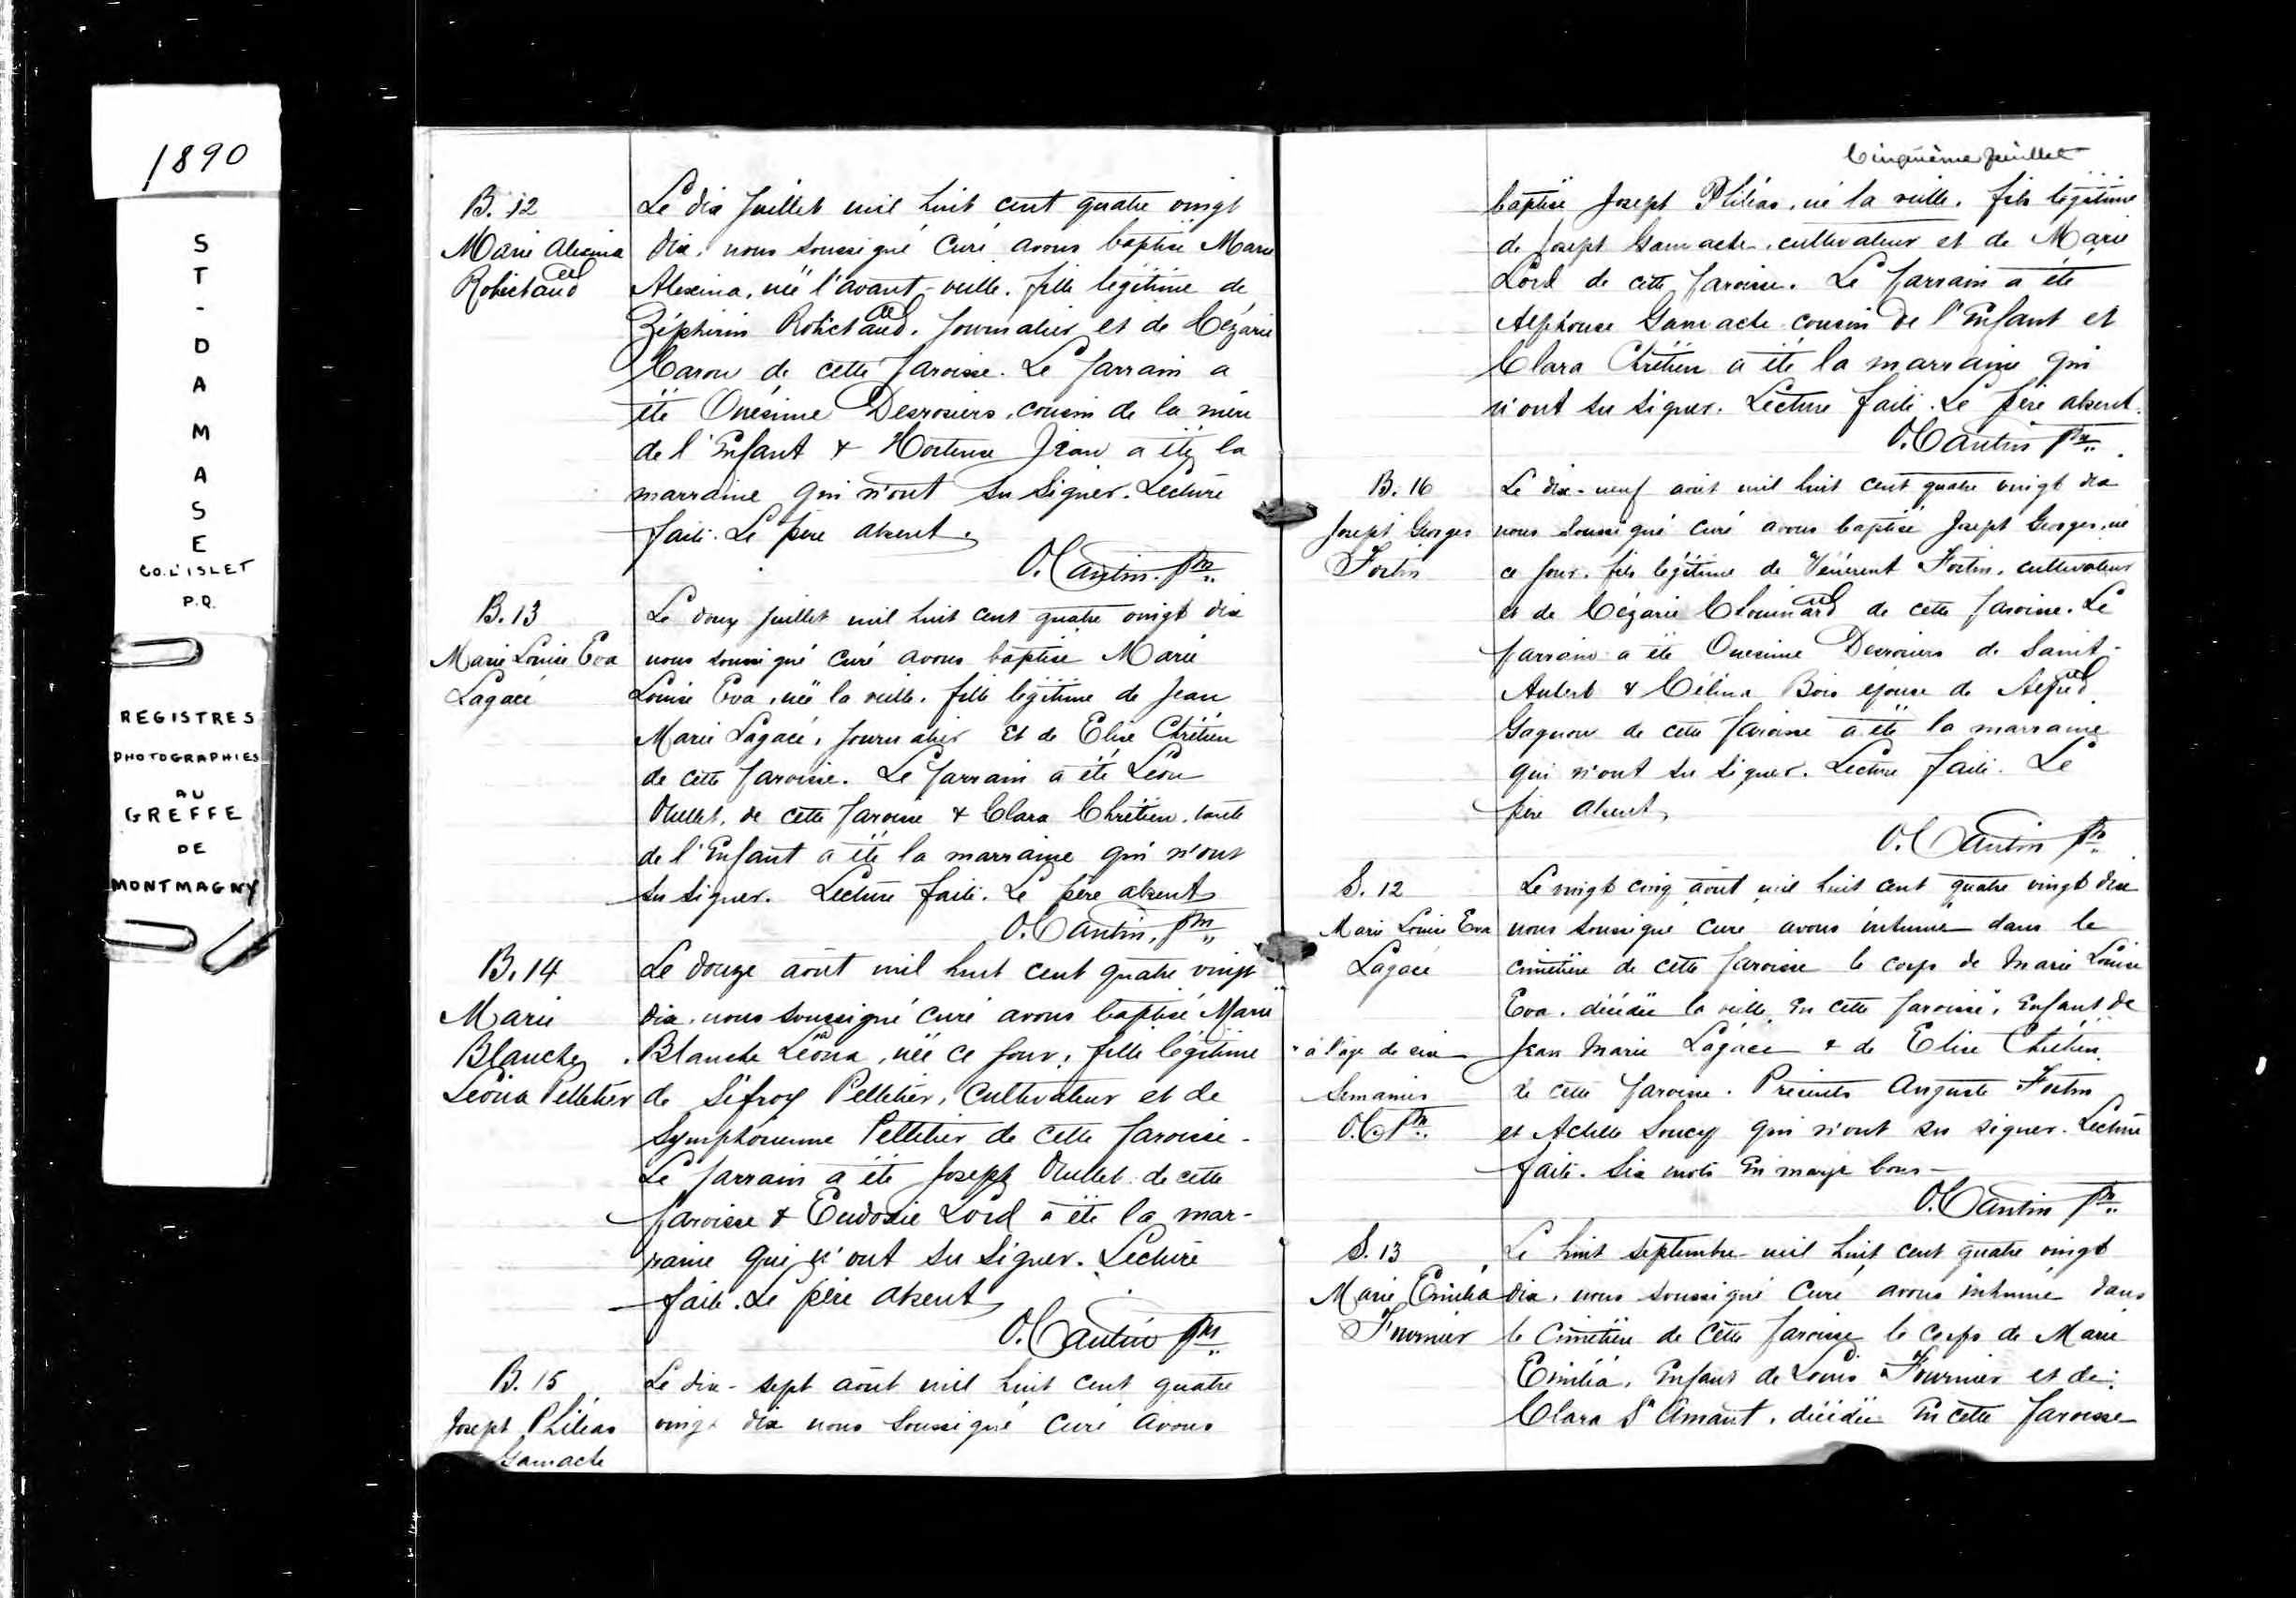 1890
ST-DAMASE
CO. L'ISLET
P.Q.
REGISTRES
PHOTOGRAPHIES
AU
GREFFE
DE
MONTMAGNY
B. 12
Marie Alexina
Robichaud
Le dix Juillet mil huit cent quatre vingt
dix, nous soussigné Curé avons baptisé Marie
Alexina, née l'avant-veille, fille légitime de
Zéphirin Robichaud, Journalier et de Cézarie
Caron de cette paroisse. Le parrain a
été Onésime Desrosiers, cousin de la mère
de l'Enfant & Hortense Jean a été la
marraine qui n'ont su signer. Lecture
faite. Le père absent.
O. Cantin. Ptre
B. 13
Marie Louise Eva
Lagacé
Le douze Juillet mil huit cent quatre vingt dix
nous soussigné curé avons baptisé Marie
Louise Eva, née la veille, fille légitime de Jean
Marie Lagacé, Journalier et de Elise Chrétien
de cette paroisse. Le parrain a été Léon
Ouellet, de cette paroisse & Clara Chrétien, tante
de l'Enfant a été la marraine qui n'ont
su signer. Lecture faite. Le père absent
O. Cantin, Ptre
B. 14
Marie
Blanche
Léona Pelletier
Le douze août mil huit cent quatre vingt
dix, nous soussigné curé avons baptisé Marie
Blanche Léona, née ce jour, fille légitime
de Sifroy Pelletier, Cultivateur et de
Symphorienne Pelletier de cette paroisse.
Le parrain a été Joseph Ouellet de cette
paroisse & Eudoxie Lord a été la mar-
raine qui n'ont su signer. Lecture
faite. Le père absent
O. Cantin Ptre
B. 15
Joseph Philéas
Gamache
Le dix-sept août mil huit cent quatre
vingt dix nous soussigné Curé avons
Cinquième feuillet
baptisé Joseph Philéas, né la veille, fils légitime
de Joseph Gamache, cultivateur et de Marie
Lord de cette paroisse. Le parrain a été
Alphonse Gamache cousin de l'Enfant et
Clara Chrétien a été la marraine qui
n'ont su signer. Lecture faite. Le père absent.
O. Cantin Ptre
B. 16
Joseph Georges
Fortin
Le dix-neuf août mil huit cent quatre vingt dix
nous soussigné curé avons baptisé Joseph Georges, né
ce jour, fils légitime de Vénérent Fortin, cultivateur
et de Cézarie Chouinard de cette paroisse. Le
parrain a été Onesime Desrosiers de Saint-
Aubert & Célina Bois épouse de Alfred
Gagnon de cette paroisse a été la marraine
qui n'ont su signer. Lecture faite. Le
père absent
O. Cantin Ptre
S. 12
Marie Louise Eva
Lagacé
Le vingt cinq août mil huit cent quatre vingt dix
nous soussigné curé avons inhumé dans le
cimetière de cette paroisse le corps de Marie Louise
Eva, décédée la veille en cette paroisse, Enfant de
" à l'age de six
Semaines
O.C. Ptre
Jean Marie Lagacé & de Elise Chrétien
de cette paroisse. Présents Auguste Fortin
et Achille Soucy qui n'ont su signer. Lecture
faite. Six mots en marge bons-
O. Cantin Ptre
S. 13
Marie Emélia
Fournier
Le huit septembre mil huit cent quatre vingt
dix, nous soussigné Curé avons inhumé dans
le cimetière de cette paroisse le corps de Marie
Emélia, Enfant de Louis Fournier et de
Clara St Amant, décédée en cette paroisse